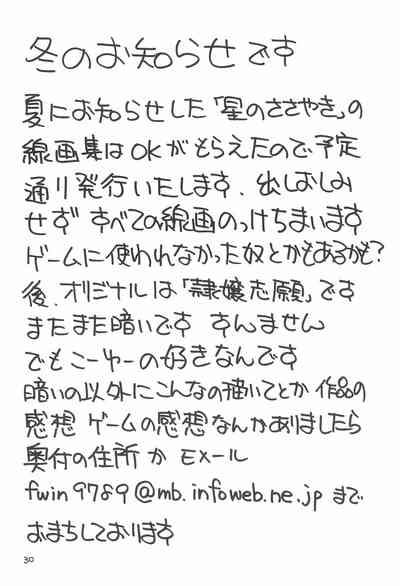 冬のお知らせです
夏にお知らせした「星のささやき」の
線画集はOKがもらえたので予定
通り発行いたします、出しおしみ
せず すべての線画のっけちまいます
ゲームに使われなかった奴とかもあるかも?
後、オリジナルは「隷嬢志願」です
またまた暗いです すんません
でもこーゆーの好きなんです
暗いの以外にこんなの描いてとか 作品の
感想 ゲームの感想なんかありましたら
奥付の住所か Eメール
fwin9789@mb.infoweb.ne.jp まで
おまちしております
30